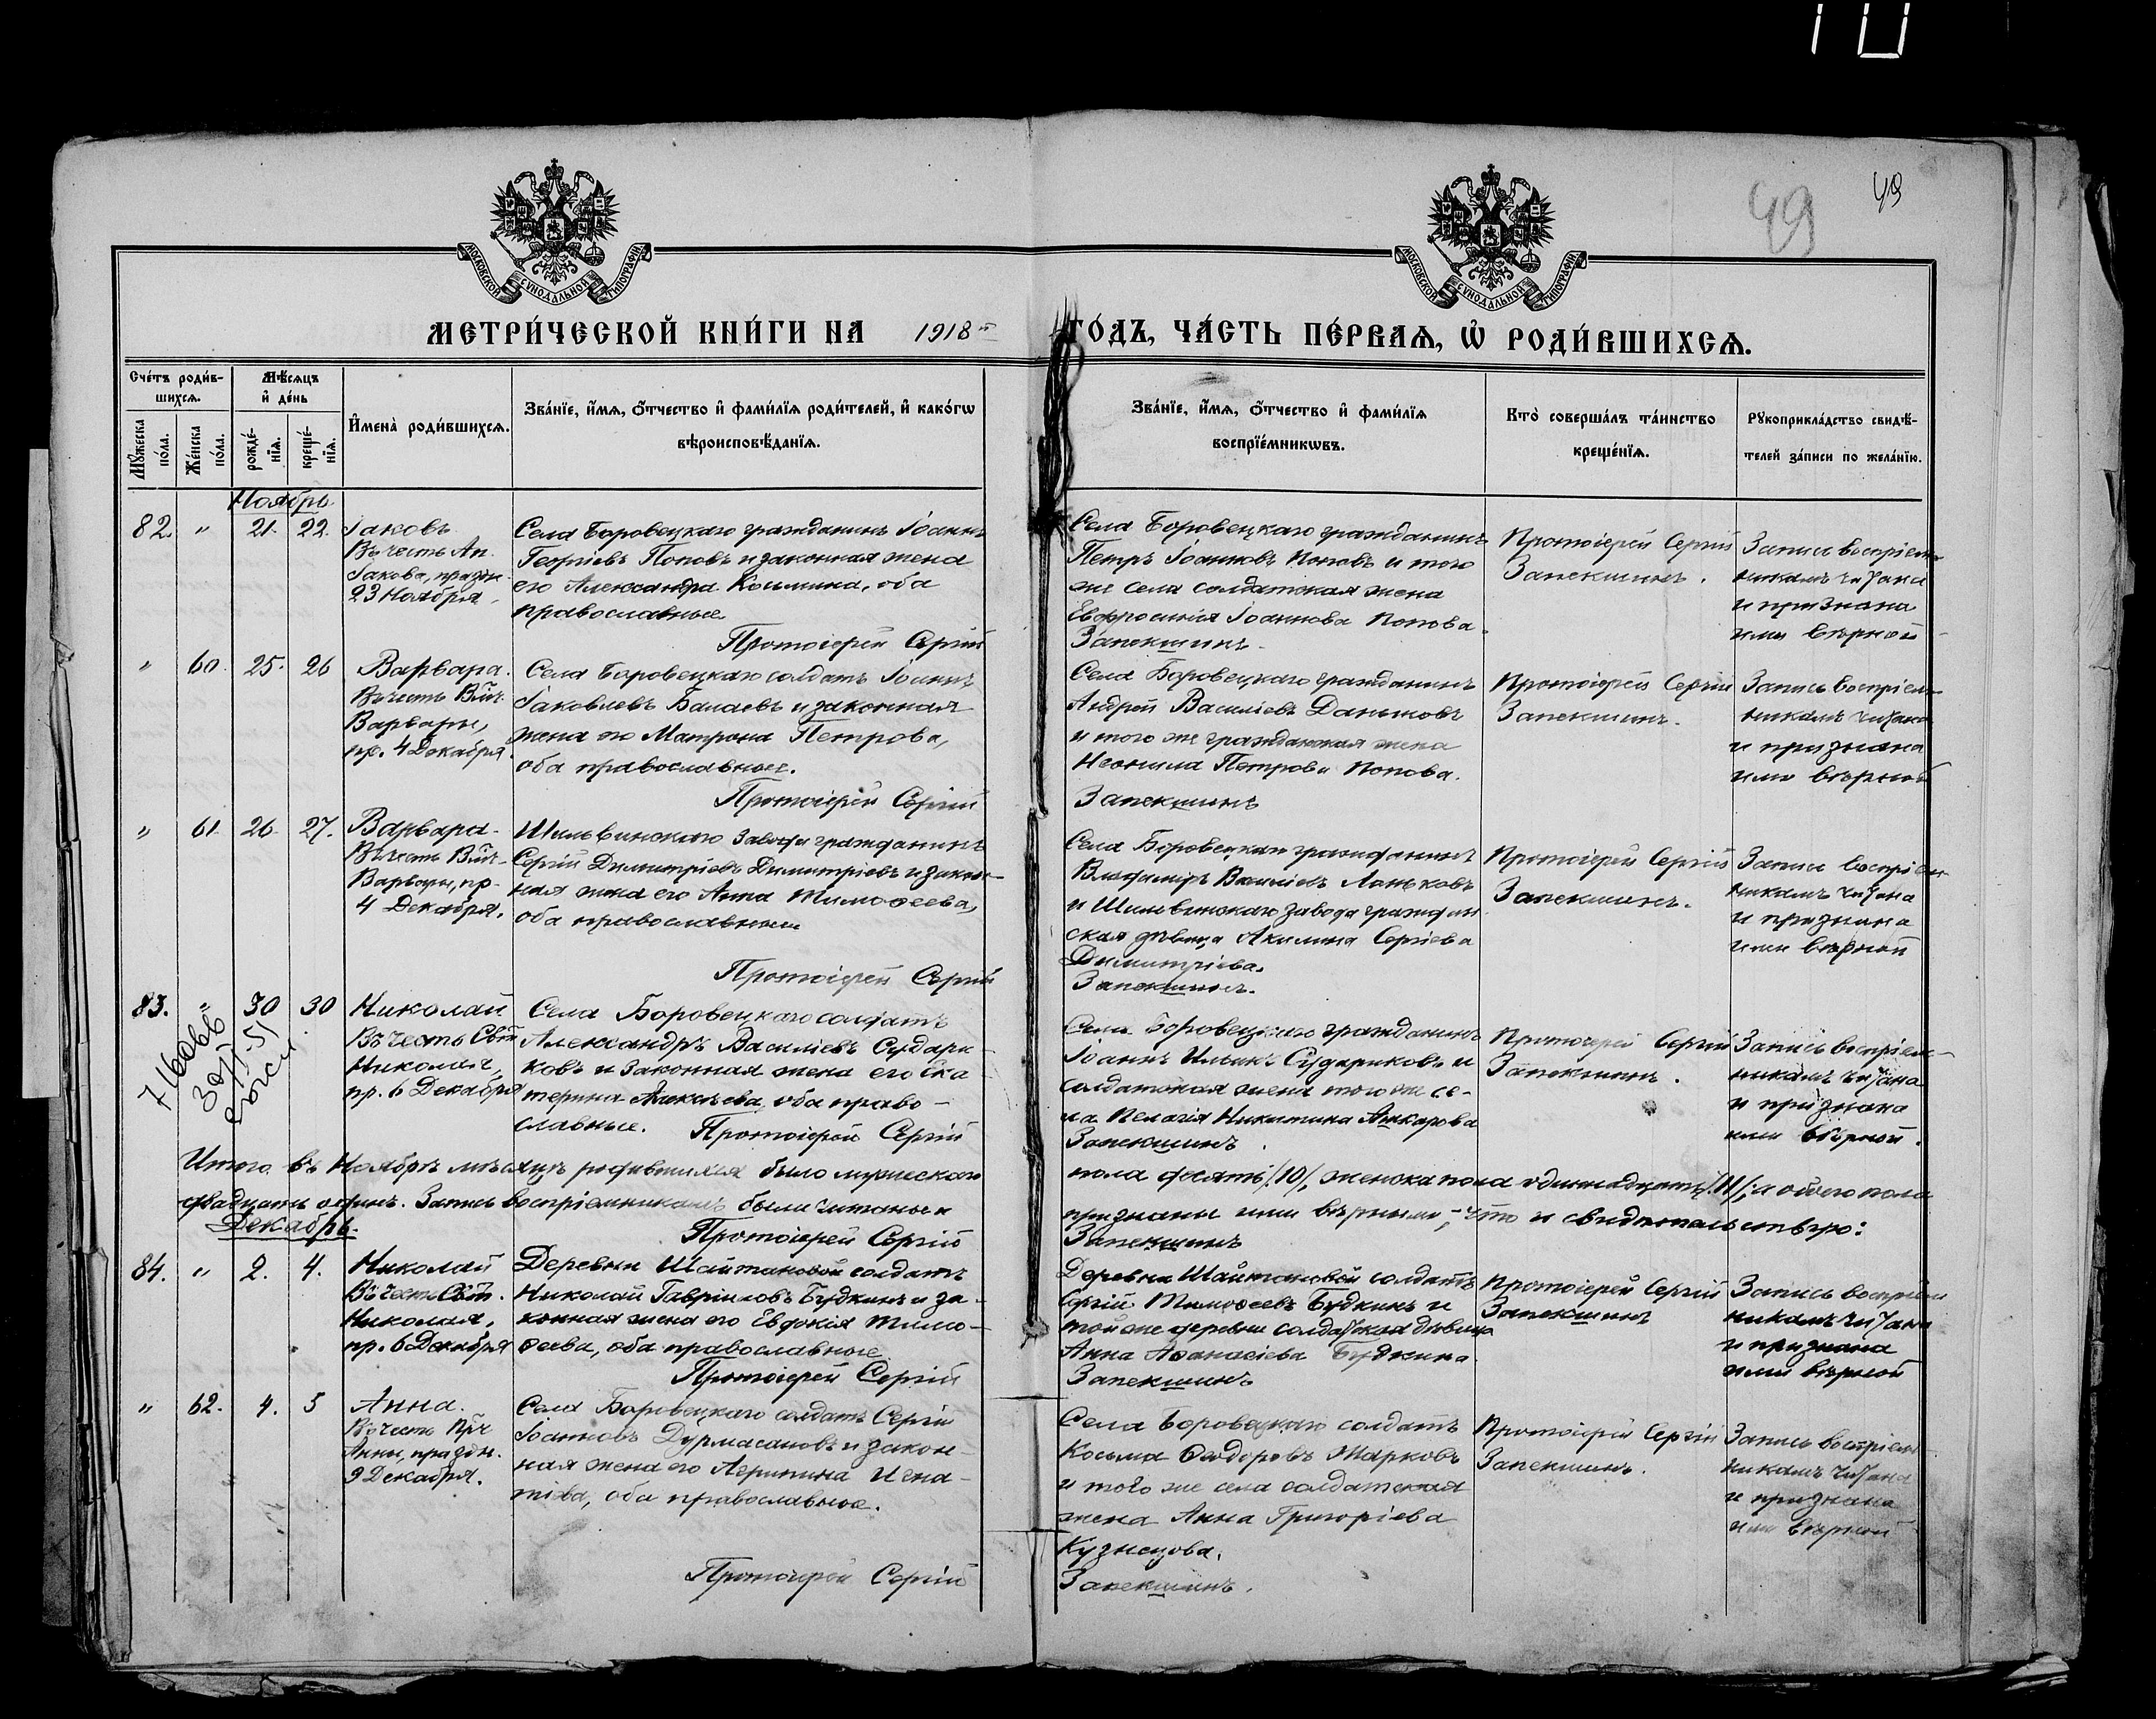 49
49
МОСКОВСКОЙ СУНОДАЛЬНОЙ ТИПОГРАФІИ
МОСКОВСКОЙ СУНОДАЛЬНОЙ ТИПОГРАФІИ
МЕТРИ́ЧЕСКОЙ КНИ́ГИ НА 1918й ГО́ДЪ, ЧА́СТЬ ПЕ́РВАѦ, Ѡ҆ РОДИ́ВШИХСѦ.
Сче́тъ роди́в-
шихсѧ.
Мѣ́сѧцъ
и҆ де́нь
Мꙋ́жеска по́ла.
Же́нска по́ла.
рожде́-нїѧ.
креще́-нїѧ.
И҆мена̀ роди́вшихсѧ.
Зва́нїе, и҆́мѧ, ѻ҆́тчество и҆ фами́лїѧ роди́телей, и҆ како́гѡ
вѣроисповѣ́данїѧ.
Зва́нїе, и҆́мѧ, ѻ҆́тчество и҆ фами́лїѧ
воспрїе́мникѡвъ.
Кто̀ соверша́лъ та́инство
креще́нїѧ.
Рꙋкоприкла́дство свидѣ́-
телей за́писи по жела́нїю.
Ноябрь
82. " 21. 22. Іаковъ
Въ честь Ап.
Іакова, праздн.
23 Ноября.
Села Боровецкаго гражданинъ Іоаннъ
Георгіевъ Поповъ и законная жена
его Александра Косьмина, оба
православные.
Протоіерей Сергій
Села Боровецкаго гражданинъ
Петръ Іоанновъ Поповъ и того
же села солдатская жена
Евфросинія Іоаннова Попова.
Запекшинъ.
Протоіерей Сергій
Запекшинъ.
Запись воспріем-
никамъ читана
и признана
ими вѣрной
" 60. 25. 26 Варвара.
Въ честь Вмч.
Варвары,
пр. 4 Декабря.
Села Боровецкаго солдатъ Іоаннъ
Іаковлевъ Балаевъ и законная
жена его Матрона Петрова,
оба православные.
Протоіерей Сергій
Села Боровецкаго гражданинъ
Андрей Василіевъ Даньковъ
и того же гражданская жена
Неонила Петрова Попова.
Запекшинъ
Протоіерей Сергій
Запекшинъ.
Запись воспріем-
никамъ читана
и признана
ими вѣрной
" 61. 26. 27. Варвара.
Въ честь Вмч.
Варвары, пр.
4 Декабря.
Шильвинскаго Завода гражданинъ
Сергій Димитріевъ Димитріевъ и закон-
ная жена его Анна Тимоѳеева,
оба православные
Протоіерей Сергій
Села Боровецкаго гражданинъ
Владиміръ Василіевъ Лоньковъ
и Шильвинскаго завода граждан
ская дѣвица Акилина Сергіева
Димитріева.
Запекшинъ.
Протоіерей Сергій
Запекшинъ.
Запись воспріем-
никамъ читана
и признана
ими вѣрной
83. " 30 30 Николай
Въ честь Свт.
Николая,
пр. 6 Декабря
Села Боровецкаго солдатъ
Александръ Василіевъ Судари-
ковъ и законная жена его Ека
терина Алексѣева, оба право-
славные. Протоіерей Сергій
Села Боровецкаго гражданинъ
Іоаннъ Ильинъ Судариковъ и
солдатская жена того же се-
ла Пелагія Никитина
Запекшинъ.
Протоіерей Сергій
Запекшинъ.
Запись воспріем-
никамъ читана
и признана
ими вѣрной.
Итого въ Ноябрѣ мѣсяцѣ родившихся было мужескаго пола десять /10/, женска пола одиннадцать /11/; а обоего пола
двадцать одинъ. Запись воспріемникамъ были читаны и признаны ими вѣрными, что и свидѣтельствую:
Протоіерей Сергій Запекшинъ
Декабрь.
84. " 2. 4. Николай
Въ честь Свт.
Николая,
пр. 6 Декабря
Деревни Шайтановой солдатъ
Николай Гавріиловъ Будкинъ и за-
конная жена его Евдокія Тимо-
ѳеева, оба православные
Протоіерей Сергій
Деревни Шайтановой солдатъ
Сергій Тимоѳеевъ Будкинъ и
той же деревни солдатская дѣвица
Анна Аѳанасіева Будкина
Запекшинъ
Протоіерей Сергій
Запекшинъ
Запись воспріем
никамъ читана
и признана
ими вѣрной
" 62. 4. 5 Анна.
Въ честь Прч
Анны, праздн.
9 Декабря.
Села Боровецкаго солдатъ Сергій
Іоанновъ Дурмасановъ и закон-
ная жена его Агрипина Игна-
тіева, оба православные.
Протоіерей Сергій
Села Боровецкаго солдатъ
Косьма Ѳеодоровъ Жарковъ
и того же села солдатская
жена Анна Григоріева
Кузнецова.
Запекшинъ.
Протоіерей Сергій
Запекшинъ.
Запись воспріем-
никамъ читана
и признана
ими вѣрной